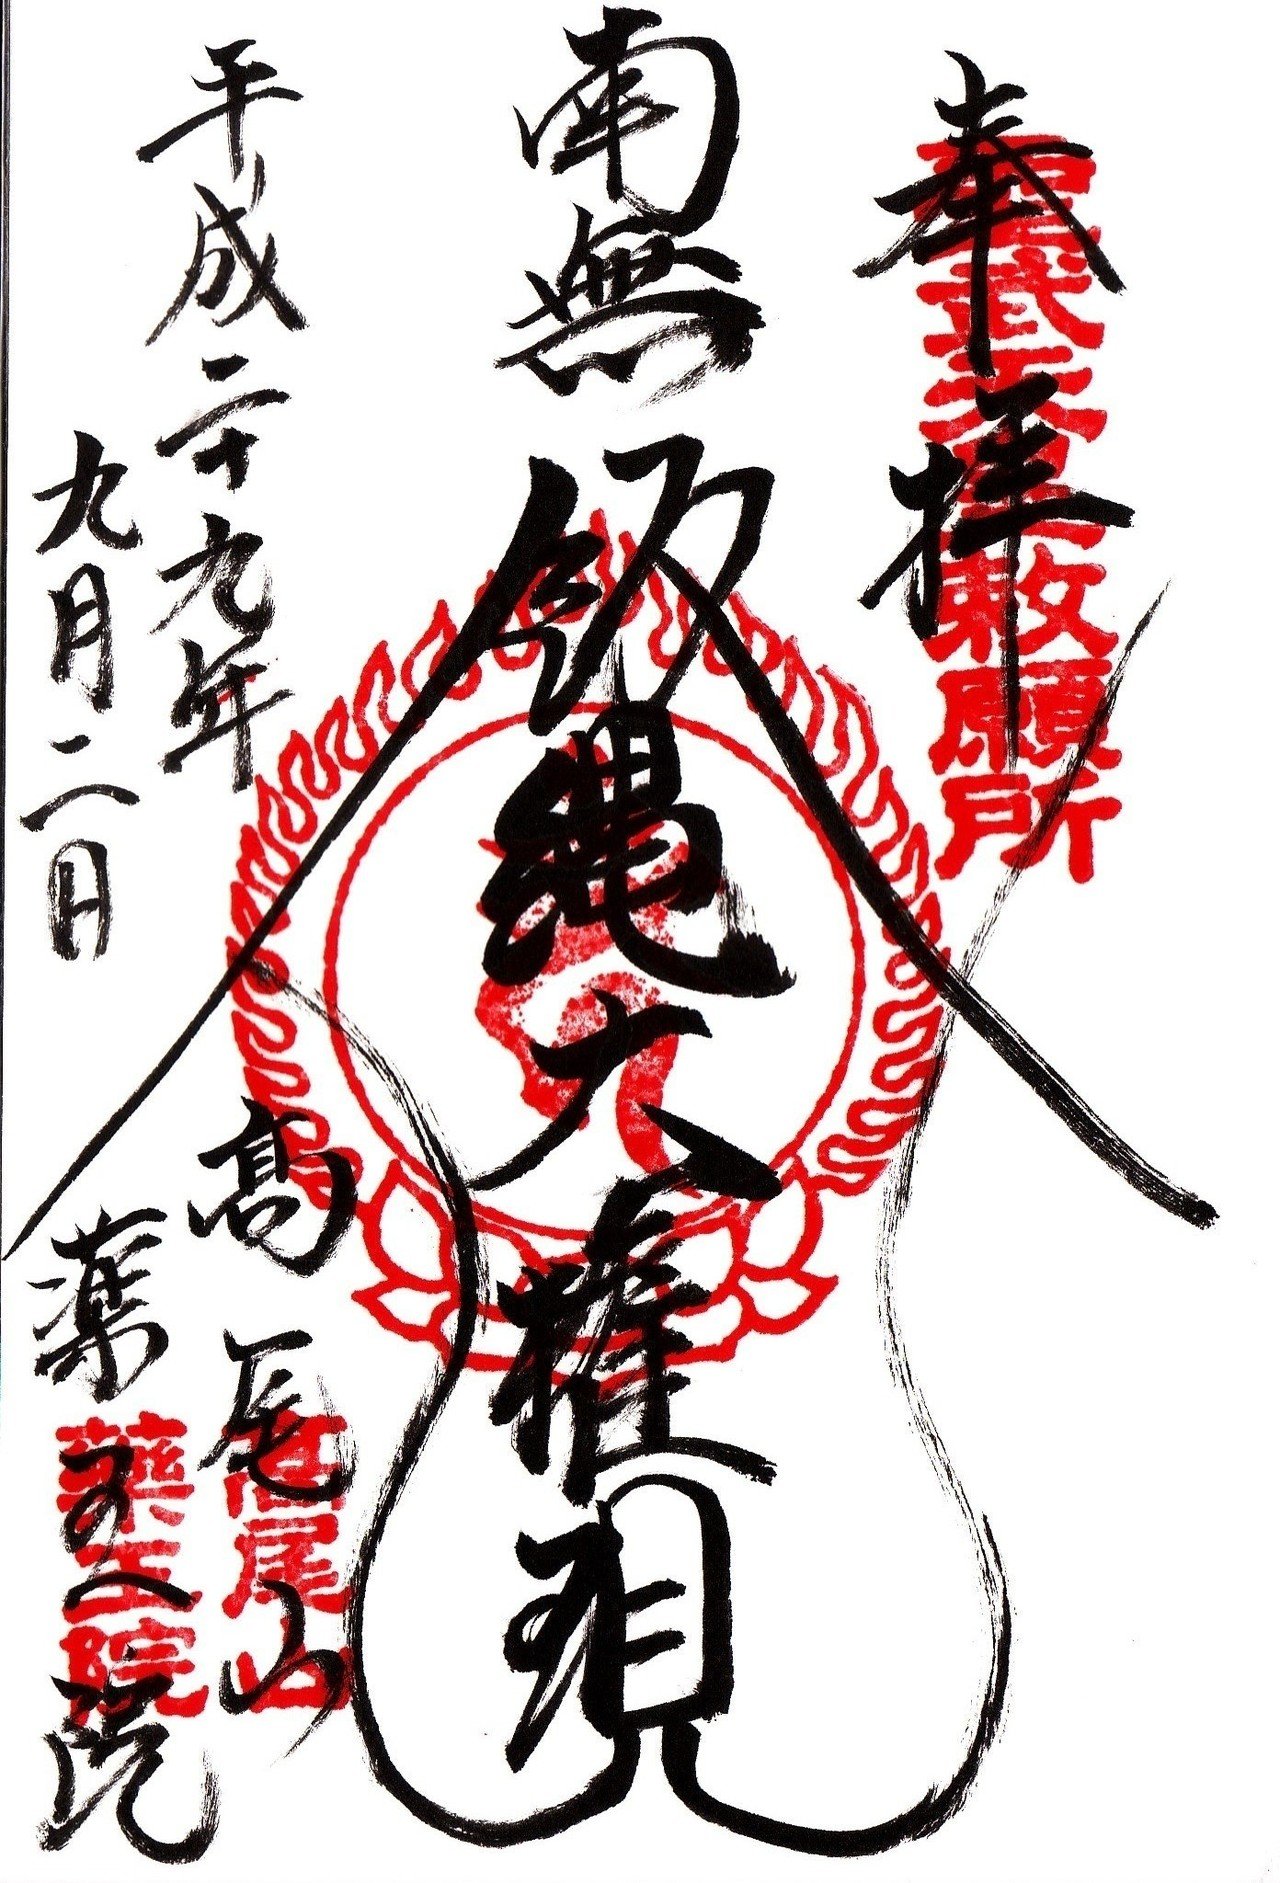 奉拝
聖武天皇勅願所
南無飯縄大権現
平成二十九年
九月二日
高尾山
高尾山
薬王院
薬王院